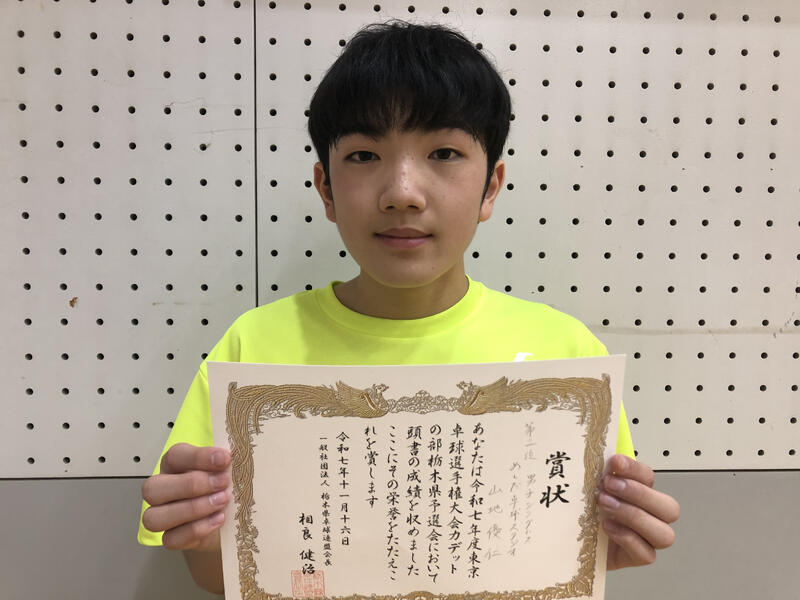 賞状
第二位 男子シングルス
めしだ卓球スタジオ
山地優仁
あなたは令和七年度東京
卓球選手権大会カデット
の部栃木県予選会において
頭書の成績を収めました
ここにその栄誉をたたえこ
れを賞します
令和七年十一月十六日
一般社団法人 栃木県卓球連盟会長
相良 健治